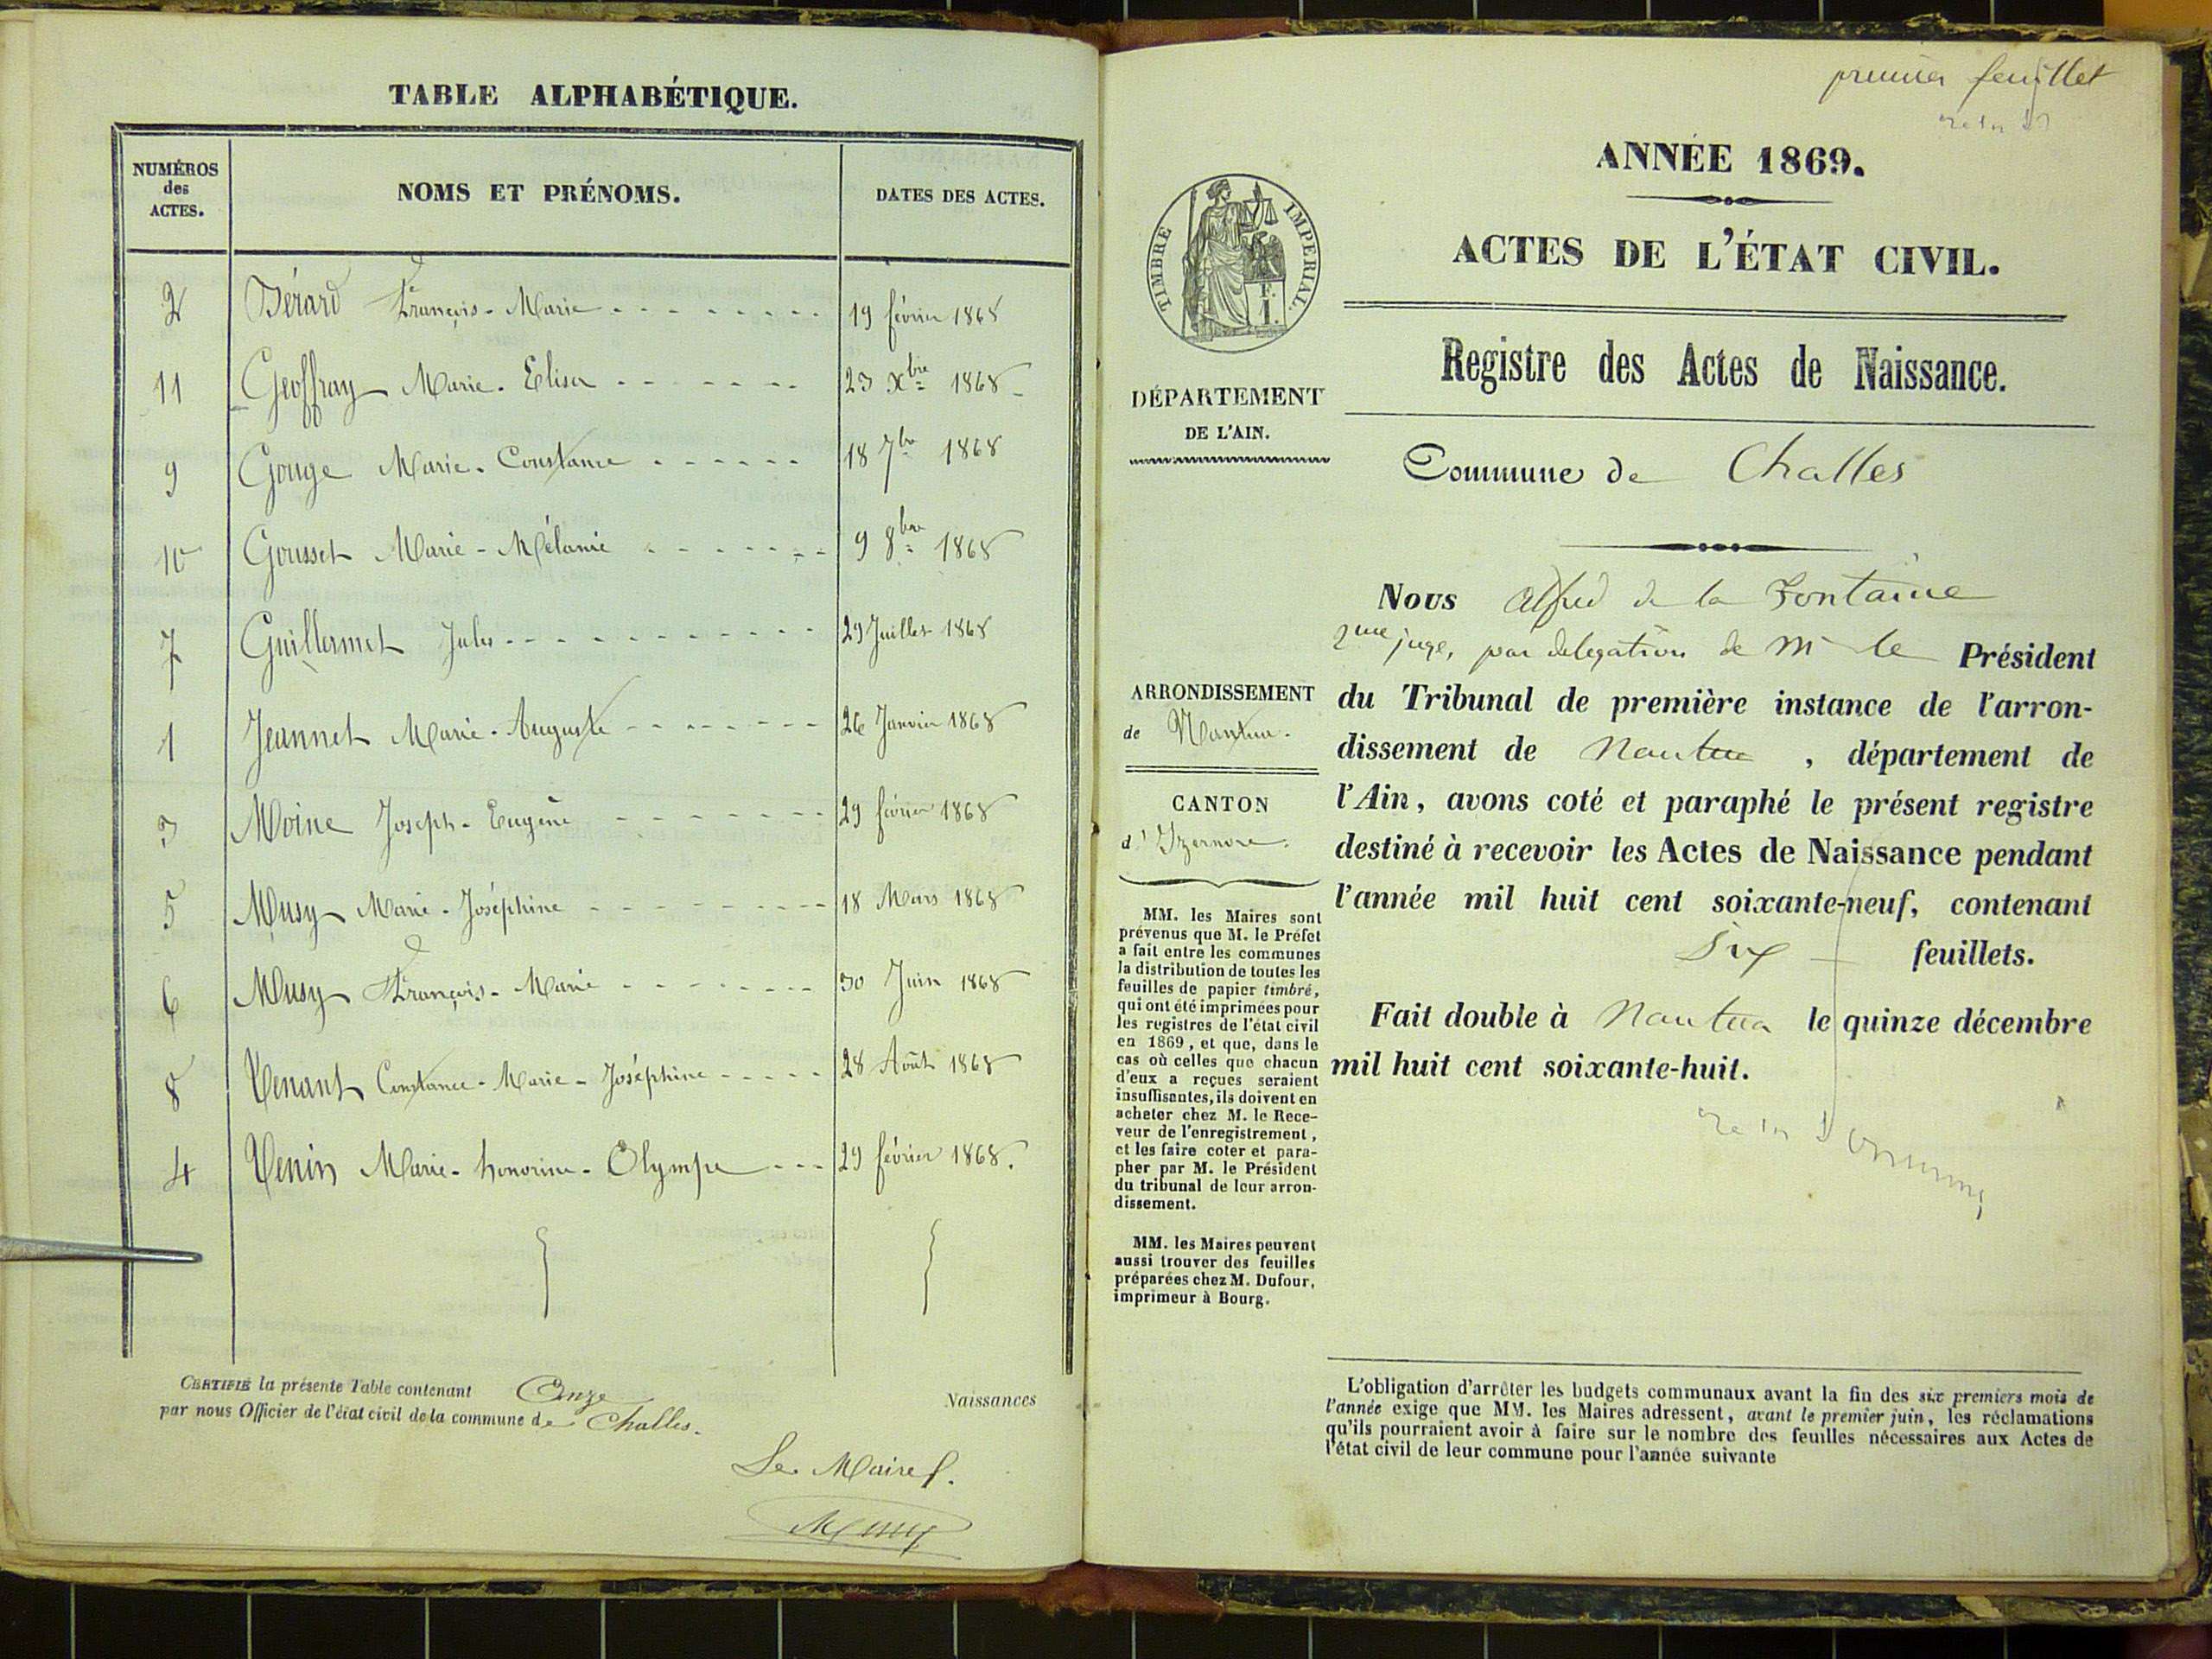 TABLE ALPHABÉTIQUE.
NUMÉROS
des
ACTES.
NOMS ET PRÉNOMS.
DATES DES ACTES.
2 Bérard François-Marie 19 février 1868
11 Geoffray Marie-Elisa 23 Xbre 1868
9 Gouge Marie-Constance 18 7bre 1868
10 Gousset Marie-Mélanie 9 8bre 1868
7 Guillermet Jules 29 Juillet 1868
1 Jeannet Marie-Auguste 26 Janvier 1868
3 Moine Joseph-Eugène 29 février 1868
5 Musy Marie-Joséphine 18 Mars 1868
6 Musy François-Marie 30 Juin 1868
8 Venant Constance-Marie-Joséphine 28 Août 1868
4 Venin Marie-honorine-Olympe 29 février 1868.
CERTIFIÉ la présente Table contenant Onze Naissances
par nous Officier de l'état civil de la commune de Challes.
Le Maire
Musy
premier feuillet
ANNÉE 1869.
ACTES DE L'ÉTAT CIVIL.
Registre des Actes de Naissance.
Commune de Challes
TIMBRE IMPERIAL.
F.
1.
DÉPARTEMENT
DE L'AIN.
ARRONDISSEMENT
de Nantua.
CANTON
d'Izernore.
MM. les Maires sont
prévenus que M. le Préfet
a fait entre les communes
la distribution de toutes les
feuilles de papier timbré,
qui ont été imprimées pour
les registres de l'état civil
en 1869, et que, dans le
cas où celles que chacun
d'eux a reçues seraient
insuffisantes, ils doivent en
acheter chez M. le Rece-
veur de l'enregistrement,
et les faire coter et para-
pher par M. le Président
du tribunal de leur arron-
dissement.
MM. les Maires peuvent
aussi trouver des feuilles
préparées chez M. Dufour,
imprimeur à Bourg.
Nous Alfred de la Fontaine
2me juge, par delegation de Mr le Président
du Tribunal de première instance de l'arron-
dissement de Nantua , département de
l'Ain, avons coté et paraphé le présent registre
destiné à recevoir les Actes de Naissance pendant
l'année mil huit cent soixante-neuf, contenant
six feuillets.
Fait double à Nantua le quinze décembre
mil huit cent soixante-huit.
L'obligation d'arrêter les budgets communaux avant la fin des six premiers mois de
l'année exige que MM. les Maires adressent, avant le premier juin, les réclamations
qu'ils pourraient avoir à faire sur le nombre des feuilles nécessaires aux Actes de
l'état civil de leur commune pour l'année suivante